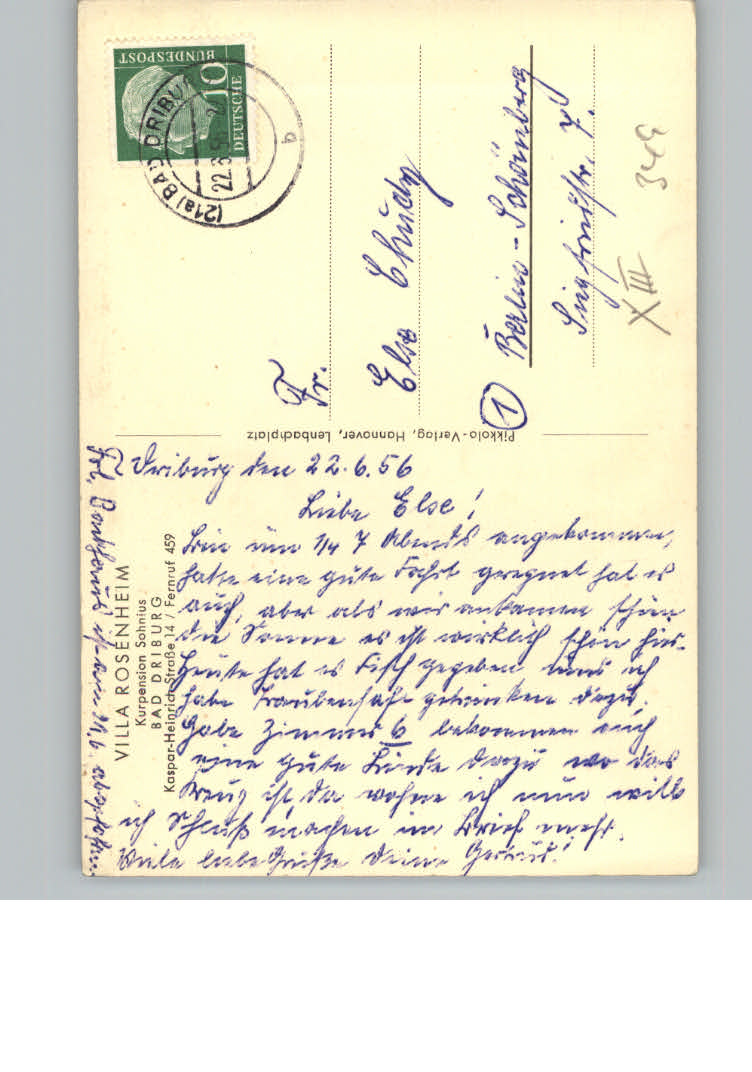 DEUTSCHE
BUNDESPOST
10
(21a) BAD DRIBURG
22.6.56
b
Fr.
Else Chudy
(1) Berlin-Schöneberg
Siegfriedstr. 7.
XIII 349
Pikkolo-Verlag, Hannover, Lenbachplatz
VILLA ROSENHEIM
Kurpension Sohnius
BAD DRIBURG
Kaspar-Heinrich-Straße 14 / Fernruf 459
Driburg den 22.6.56
Liebe Else!
Bin um 1/4 7 Abends angekommen,
hatte eine gute Fahrt geregnet hat es
auch, aber als wir ankamen schien
die Sonne es ist wirklich schön hier.
Heute hat es Fisch gegeben und ich
habe Traubensaft getrunken dazu.
Habe Zimmer 6 bekommen auch
eine gute dazu wo das
Kreuz ist, da wohne ich nun will
ich Schluß machen im Brief mehr.
Viele liebe Grüße Deine Gertrud.
Frl. ist am 21.6.